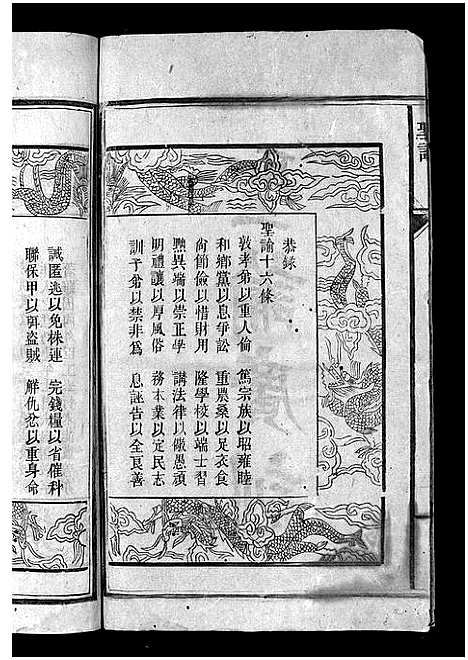 聖諭
恭録
聖諭十六條
敦孝弟以重人倫　篤宗族以昭雍睦
和鄉黨以息爭訟　重農桑以足衣食
尚節儉以惜財用　隆學校以端士習
黜異端以崇正學　講法律以儆愚頑
明禮讓以厚風俗　務本業以定民志
訓子弟以禁非為　息誣告以全良善
誡匿逃以免株連　完錢糧以省催科
聯保甲以弭盜賊　解仇忿以重身命